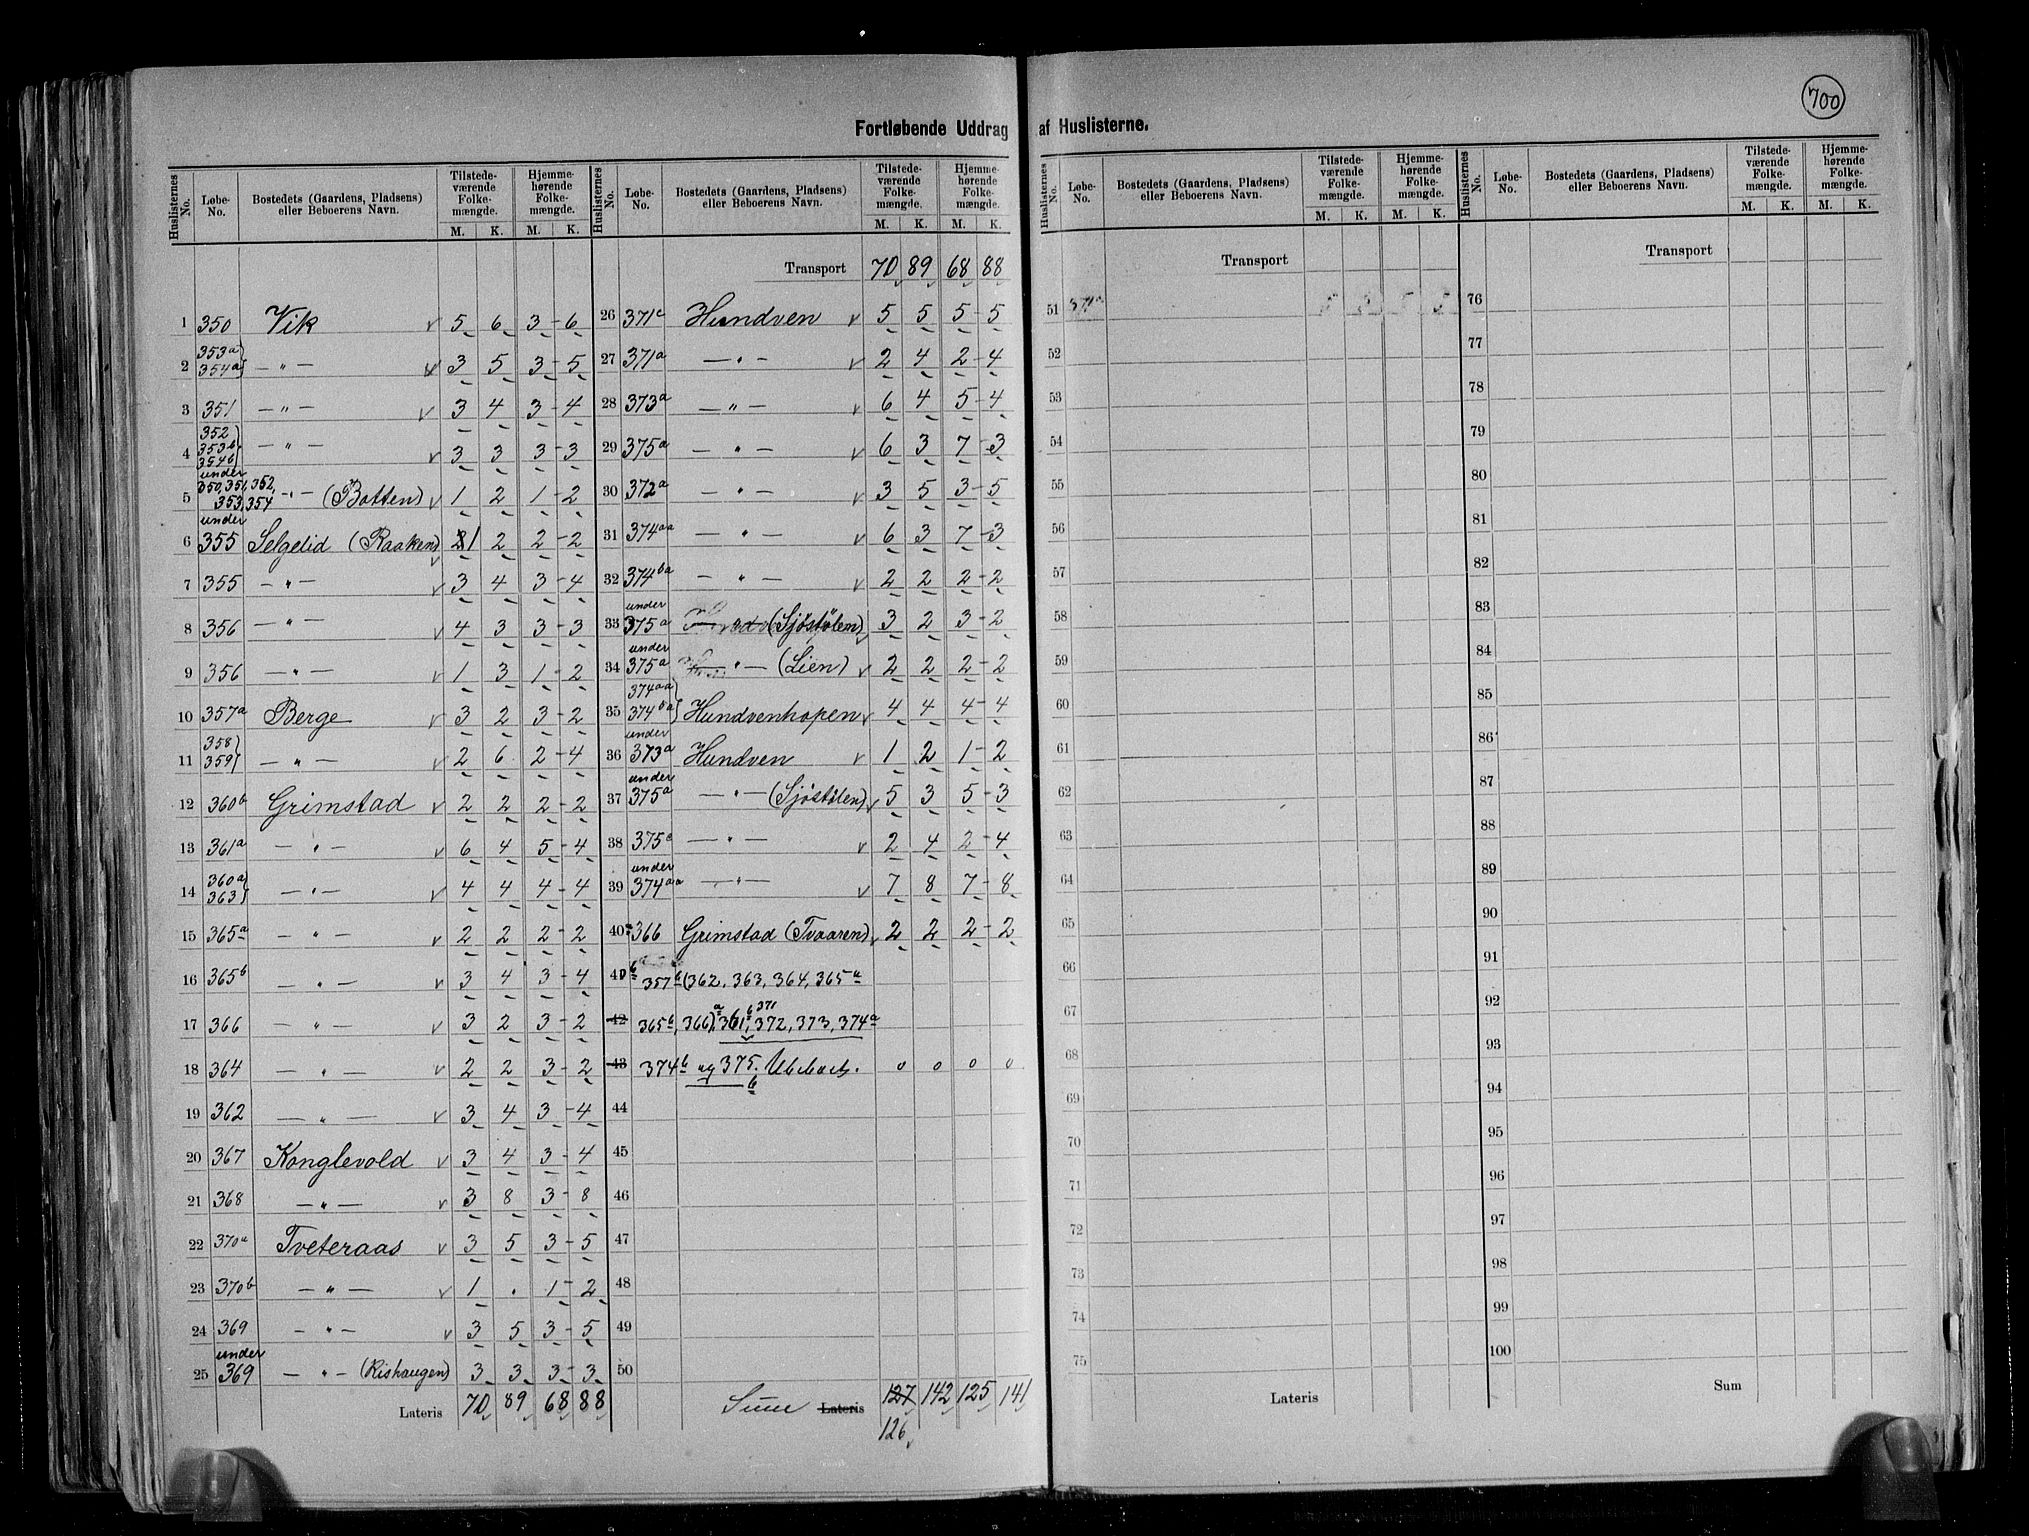 700
Fortløbende Uddrag af Huslisterne.
Huslisternes No. | Løbe-No. | Bostedets (Gaardens, Pladsens) eller Beboerens Navn. | Tilstedeværende Folkemængde. M. K. | Hjemmehørende Folkemængde. M. K.
1 350 Vik v 5 6 3 - 6
2 353a 354a } — " — v 3 5 3 - 5
3 351 — " — v 3 4 3 - 4
4 352 353b 354b } — " — v 3 3 3 - 3
5 under 350, 351, 352, 353, 354 — " — (Botten) v 1 2 1 - 2
6 under 355 Selgelid (Raaken) v 1 2 2 - 2
7 355 — " — v 3 4 3 - 4
8 356 — " — v 4 3 3 - 3
9 356 — " — v 1 3 1 - 2
10 357a Berge v 3 2 3 - 2
11 358 359 } — " — v 2 6 2 - 4
12 360b Grimstad v 2 2 2 - 2
13 361a — " — v 6 4 5 - 4
14 360a 363 } — " — v 4 4 4 - 4
15 365a — " — v 2 2 2 - 2
16 365b — " — v 3 4 3 - 4
17 366 — " — v 3 2 3 - 2
18 364 — " — v 2 2 3 - 2
19 362 — " — v 3 4 3 - 4
20 367 Konglevold v 3 4 3 - 4
21 368 — " — v 3 8 3 - 8
22 370a Tveteraas v 3 5 3 - 5
23 370b — " — v 1 . 1 - 2
24 369 — " — v 3 5 3 - 5
25 under 369 — " — (Rishaugen) 3 3 3 - 3
Lateris 70 89 68 88
Huslisternes No. | Løbe-No. | Bostedets (Gaardens, Pladsens) eller Beboerens Navn. | Tilstedeværende Folkemængde. M. K. | Hjemmehørende Folkemængde. M. K.
Transport 70 89 68 88
26 371c Hundven v 5 5 5 - 5
27 371a — " — v 2 4 2 - 4
28 373a — " — v 6 4 5 - 4
29 375a — " — v 6 3 7 - 3
30 372a — " — v 3 5 3 - 5
31 374aa — " — v 6 3 7 - 3
32 374ba — " — v 2 2 2 - 2
33 under 375a (Sjöstölen) v 3 2 3 - 2
34 under 375a — " — (Lien) v 2 2 2 - 2
35 374aa 374ba } Hundvenhopen v 4 4 4 - 4
36 under 373a Hundven v 1 2 1 - 2
37 under 375a — " — (Sjöstölen) v 5 3 5 - 3
38 375c — " — v 2 4 2 - 4
39 under 374aa — " — v 7 8 7 - 8
40a 366 Grimstad (Tvaaren) v 2 2 2 - 2
40b 357b (362, 363, 364, 365a
42 365b, 366), 361, 371 372, 373, 374a
43 374b og 375b. Ubeboet. 0 0 0 0
44
45
46
47
48
49
50
Sum Lateris 127 142 125 141
126
Huslisternes No. | Løbe-No. | Bostedets (Gaardens, Pladsens) eller Beboerens Navn. | Tilstedeværende Folkemængde. M. K. | Hjemmehørende Folkemængde. M. K.
Transport
51 371a
52
53
54
55
56
57
58
59
60
61
62
63
64
65
66
67
68
69
70
71
72
73
74
75
Lateris
Huslisternes No. | Løbe-No. | Bostedets (Gaardens, Pladsens) eller Beboerens Navn. | Tilstedeværende Folkemængde. M. K. | Hjemmehørende Folkemængde. M. K.
Transport
76
77
78
79
80
81
82
83
84
85
86
87
88
89
90
91
92
93
94
95
96
97
98
99
100
Sum